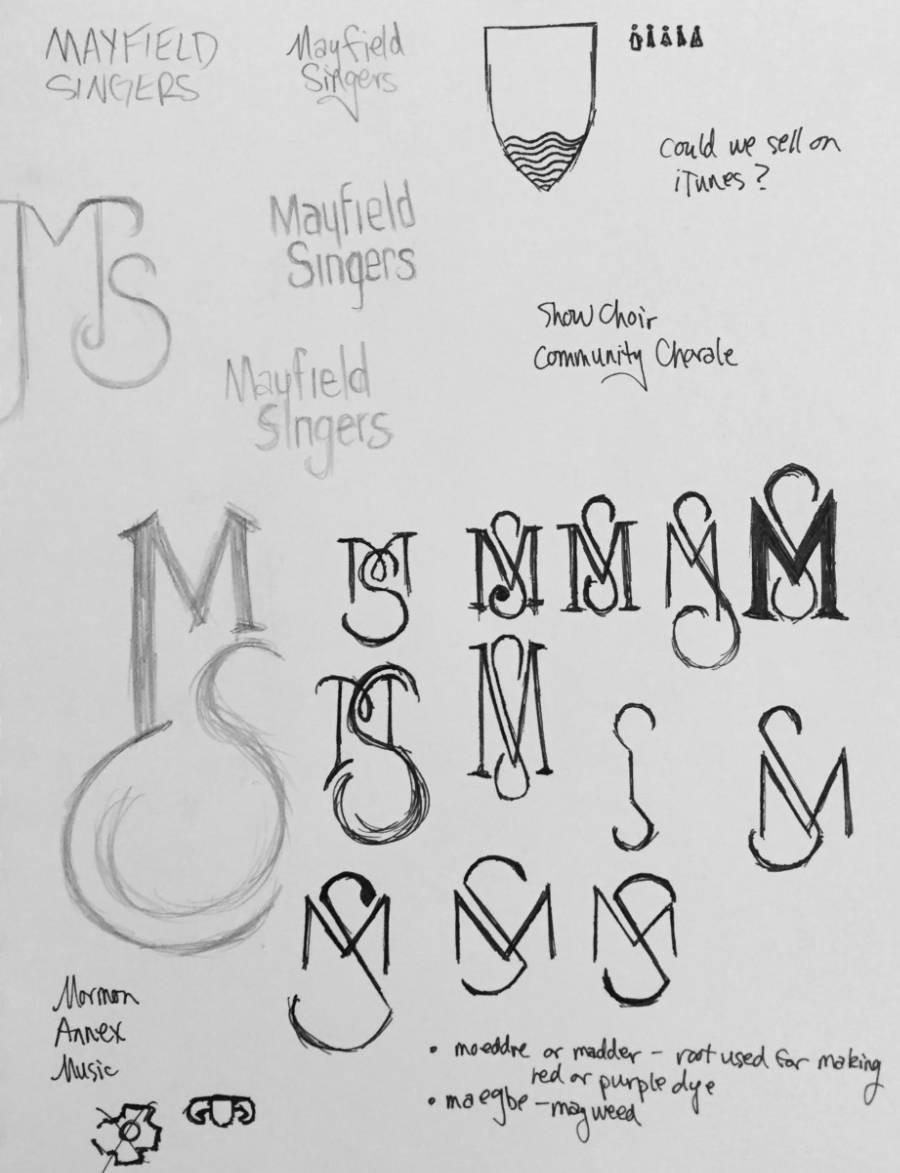 MAYFIELD
SINGERS
Mayfield
Singers
could we sell on
iTunes?
MS
Mayfield
Singers
Show Choir
Community Chorale
Mayfield
SIngers
MS
MS
MS
MS
MS
MS
MS
MS
S
MS
MS
MS
MS
Mormon
Annex
Music
• moeddre or madder – root used for making
red or purple dye
• maegbe – mayweed